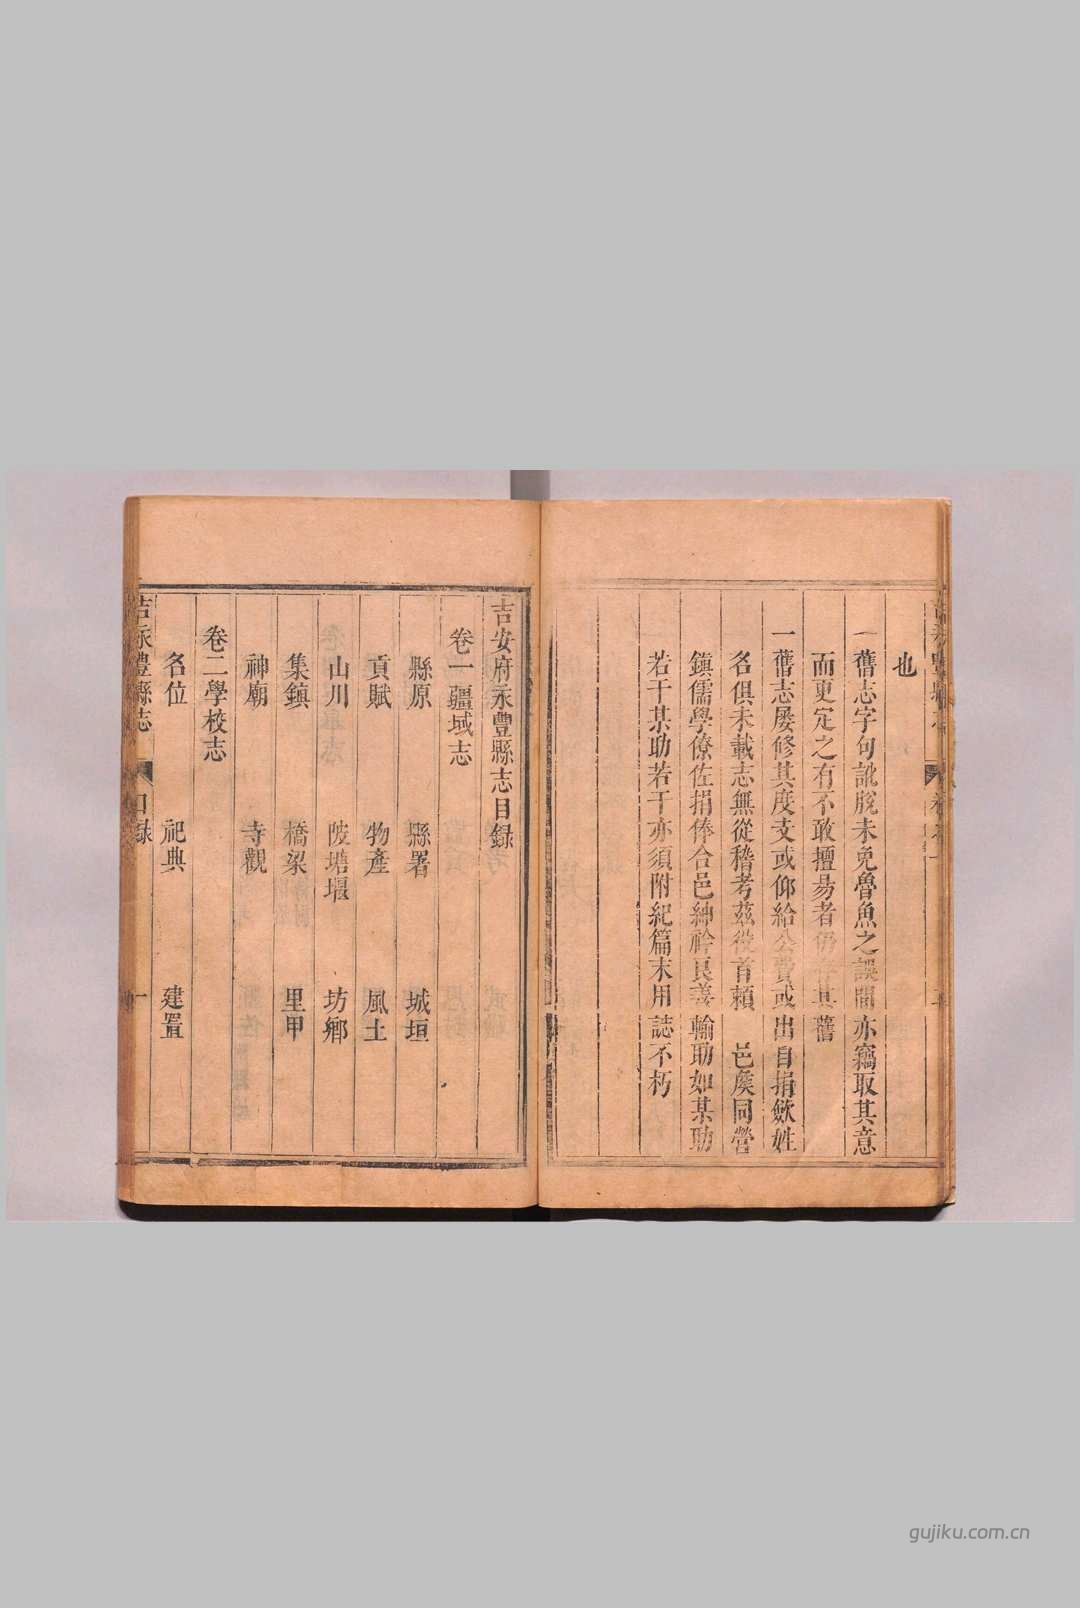 也
一舊志字句訛脫未免魯魚之誤間亦竊取其意
而更定之有不敢擅易者仍存其舊
一舊志屡修其度支或仰給公費或出自捐歛姓
名俱未載志無從稽考茲役首賴 邑矦同營
鎮儒學僚佐捐俸合邑紳衿良善輸助如某助
若干某助若干亦須附紀篇末用誌不朽
吉安府永豐縣志目録
卷一疆域志
縣原 縣署 城垣
貢賦 物產 風土
山川 陂塘堰 坊鄉
集鎮 橋梁 里甲
神廟 寺觀
卷二學校志
名位 祀典 建置
吉永豐縣志 目録 一
gujiku.com.cn